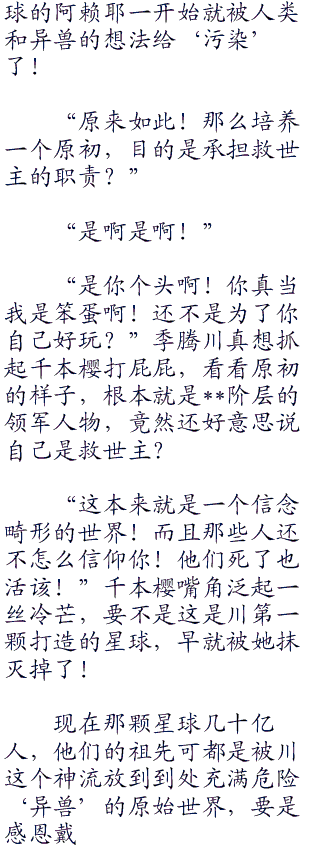 球的阿赖耶一开始就被人类
和异兽的想法给‘污染’
了！
“原来如此！那么培养
一个原初，目的是承担救世
主的职责？”
“是啊是啊！”
“是你个头啊！你真当
我是笨蛋啊！还不是为了你
自己好玩？”季腾川真想抓
起千本樱打屁屁，看看原初
的样子，根本就是**阶层的
领军人物，竟然还好意思说
自己是救世主？
“这本来就是一个信念
畸形的世界！而且那些人还
不怎么信仰你！他们死了也
活该！”千本樱嘴角泛起一
丝冷芒，要不是这是川第一
颗打造的星球，早就被她抹
灭掉了！
现在那颗星球几十亿
人，他们的祖先可都是被川
这个神流放到到处充满危险
‘异兽’的原始世界，要是
感恩戴